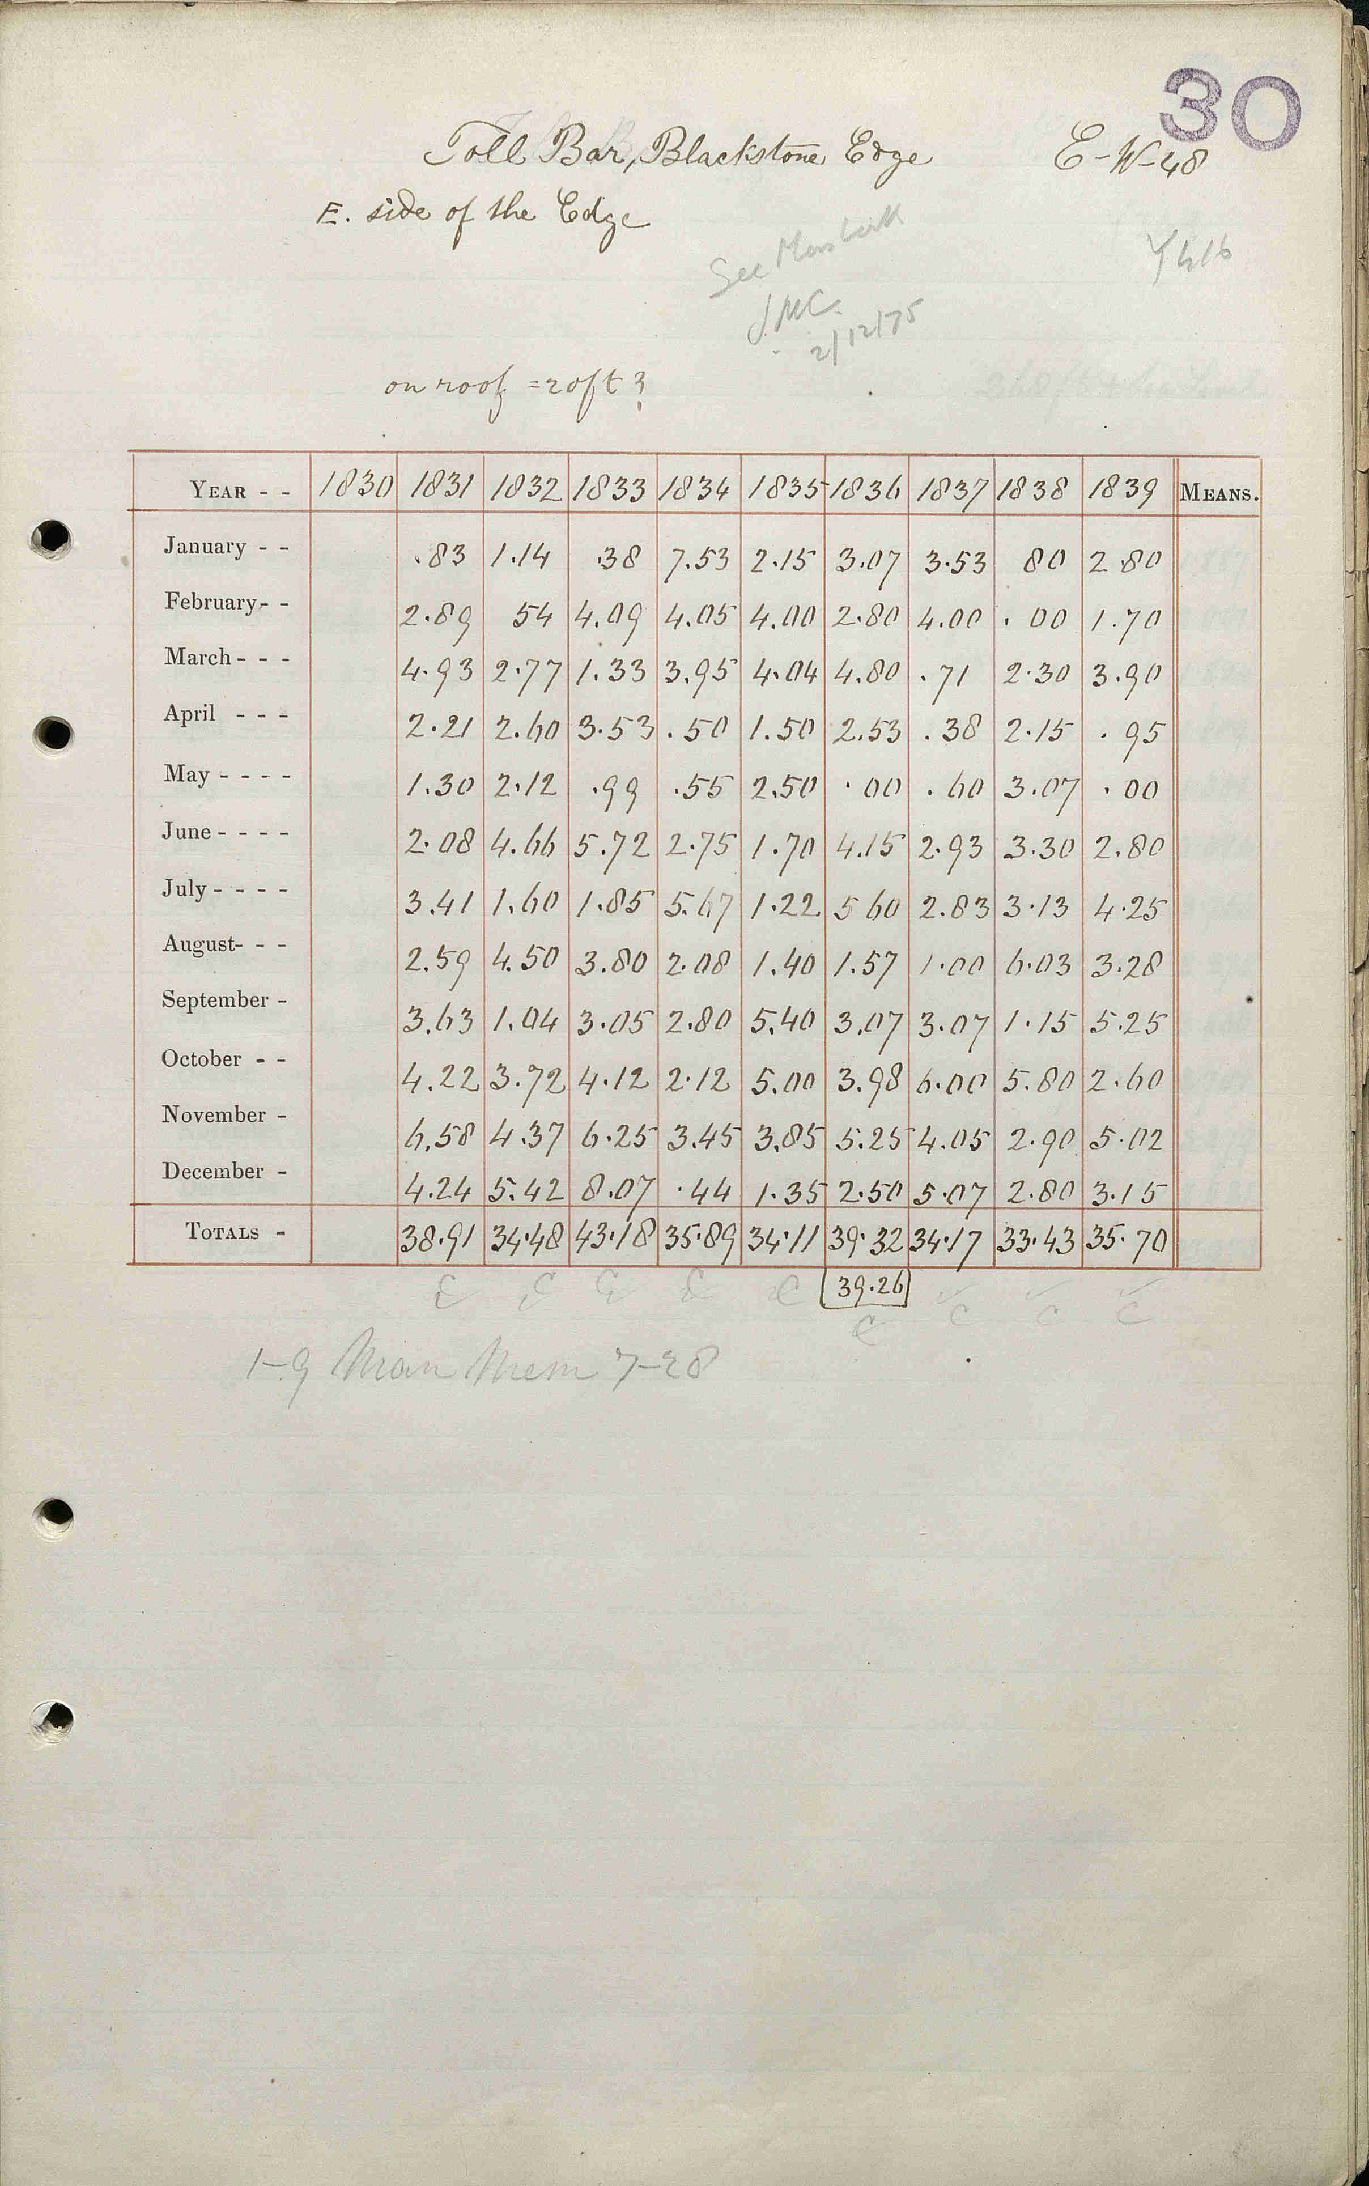 30
Toll Bar, Blackstone Edge E-W-48
E. side of the Edge
See
2/12/75
on roof = 20ft ?
YEAR - - 1830 1831 1832 1833 1834 1835 1836 1837 1838 1839 MEANS.
January - - .83 1.14 .38 7.53 2.15 3.07 3.53 80 2.80
February- - 2.89 54 4.09 4.05 4.00 2.80 4.00 .00 1.70
March - - - 4.93 2.77 1.33 3.95 4.04 4.80 .71 2.30 3.90
April - - - 2.21 2.60 3.53 .50 1.50 2.53 .38 2.15 .95
May - - - - 1.30 2.12 .99 .55 2.50 .00 .60 3.07 .00
June - - - - 2.08 4.66 5.72 2.75 1.70 4.15 2.93 3.30 2.80
July - - - - 3.41 1.60 1.85 5.67 1.22 5 60 2.83 3.13 4.25
August- - - 2.59 4.50 3.80 2.08 1.40 1.57 1.00 6.03 3.28
September - 3.63 1.04 3.05 2.80 5.40 3.07 3.07 1.15 5.25
October - - 4.22 3.72 4.12 2.12 5.00 3.98 6.00 5.80 2.60
November - 6.58 4.37 6.25 3.45 3.85 5.25 4.05 2.90 5.02
December - 4.24 5.42 8.07 .44 1.35 2.50 5.07 2.80 3.15
TOTALS - 38.91 34.48 43.18 35.89 34.11 39.32 34.17 33.43 35.70
39.26
C C C C C C C C C
1-9 Man Mem 7-28